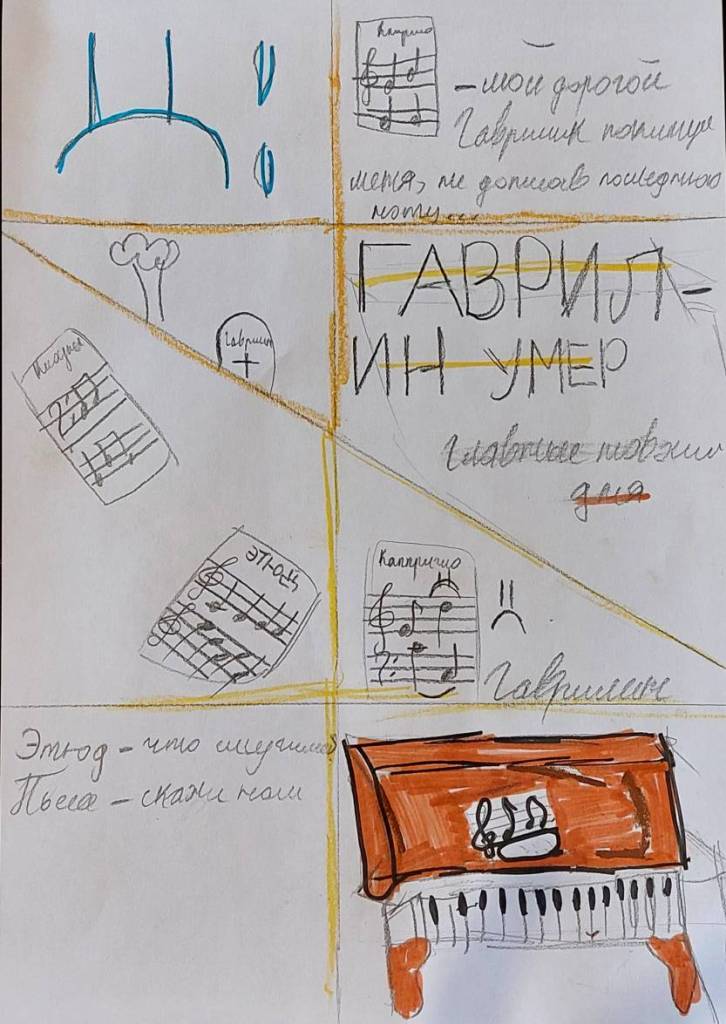 Каприччо
- мой дорогой
Гаврилин покинул
меня, не дописав последнюю
ноту...
Гаврилин
ГАВРИЛ-
ИН УМЕР
Главные
дня
ЭТЮД
Каприччо
Гаврилин
Этюд - что случилось
Пьеса - скажи нам